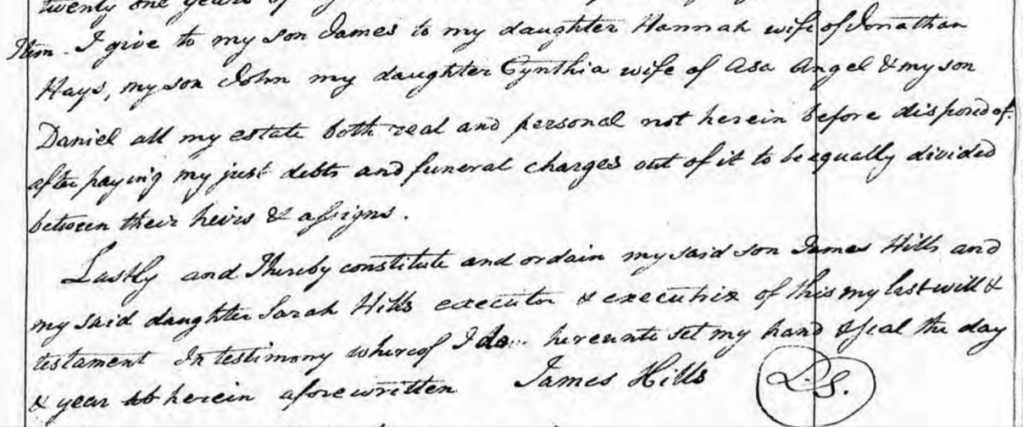 twenty one years of
Item. I give to my son James to my daughter Hannah wife of Jonathan
Hays, my son John my daughter Cynthia wife of Asa Angel & my son
Daniel all my estate both real and personal not herein before disposed of.
after paying my just debts and funeral charges out of it to be equally divided
between their heirs & assigns.
Lastly and I hereby constitute and ordain my said son James Hills and
my said daughter Sarah Hills executor & executrix of this my last will &
testament In testimony whereof I do hereunto set my hand & seal the day
& year herein aforewritten James Hills L.S.